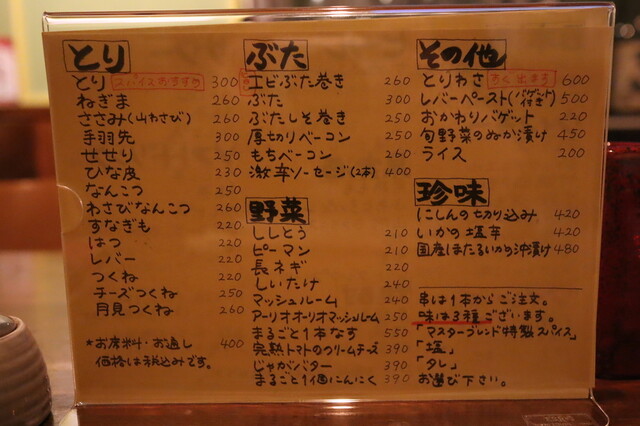 とり
とり スパイスおすすめ 300
ねぎま 260
ささみ(山わさび) 260
手羽先 300
せせり 250
ひな皮 230
なんこつ 250
わさびなんこつ 260
すなぎも 220
はつ 220
レバー 220
つくね 220
チーズつくね 250
月見つくね 260
*お席料・お通し 400
価格は税込みです。
ぶた
エビぶた巻き 260
ぶた 300
ぶたしそ巻き 260
厚切りベーコン 300
もちベーコン 260
激辛ソーセージ(2本) 400
野菜
ししとう 210
ピーマン 210
長ネギ 220
しいたけ 240
マッシュルーム 240
アーリオオーリオマッシュルーム 250
まるごと1本なす 550
完熟トマトのクリームチーズ 390
じゃがバター 390
まるごと1個にんにく 390
その他
とりわさ 600
レバーペースト(バゲット付き) 500
おかわりバゲット 220
旬野菜のぬか漬け 450
ライス 200
珍味
にしんの切り込み 420
いかの塩辛 420
国産ほたるいかの沖漬け 480
串は1本からご注文。
味は3種ございます。
「マスターブレンド特製スパイス」
「塩」
「タレ」
お選び下さい。